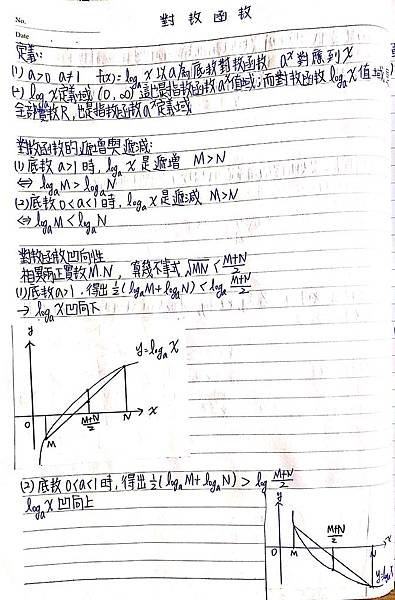 No.
Date
對數函數
定義:
(1) a>0 a≠1 f(x)=logₐx 以a為底數對數函數 aˣ對應到x
(2) logₐx定義域 (0,∞) 這也是指數函數aˣ值域;而對數函數logₐx值域
全部實數R,也是指數函數aˣ定義域
對數函數的遞增與遞減:
(1)底數a>1時,logₐx是遞增 M>N
⇔ logₐM>logₐN
(2)底數0<a<1時,logₐx是遞減 M>N
⇔logₐM<logₐN
對數函數凹向性
相異兩正實數M.N, 算幾不等式√MN<(M+N)/2
(1)底數a>1,得出½(logₐM+logₐN)<logₐ(M+N)/2
→ logₐx凹向下
y
y=logₐx
O M (M+N)/2 N x
(2)底數0<a<1時,得出½(logₐM+logₐN)>log(M+N)/2
logₐx凹向上
y
O M (M+N)/2 N x